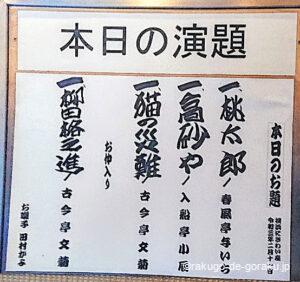 本日の演題
本日のお題
横浜にぎわい座
一、桃太郎/春風亭与いち
一、高砂や/入船亭小辰
一、猫の災難/古今亭文菊
お仲入り
一、柳田格之進/古今亭文菊
お囃子 田村かよ
@rakugo-de-goraku.jp